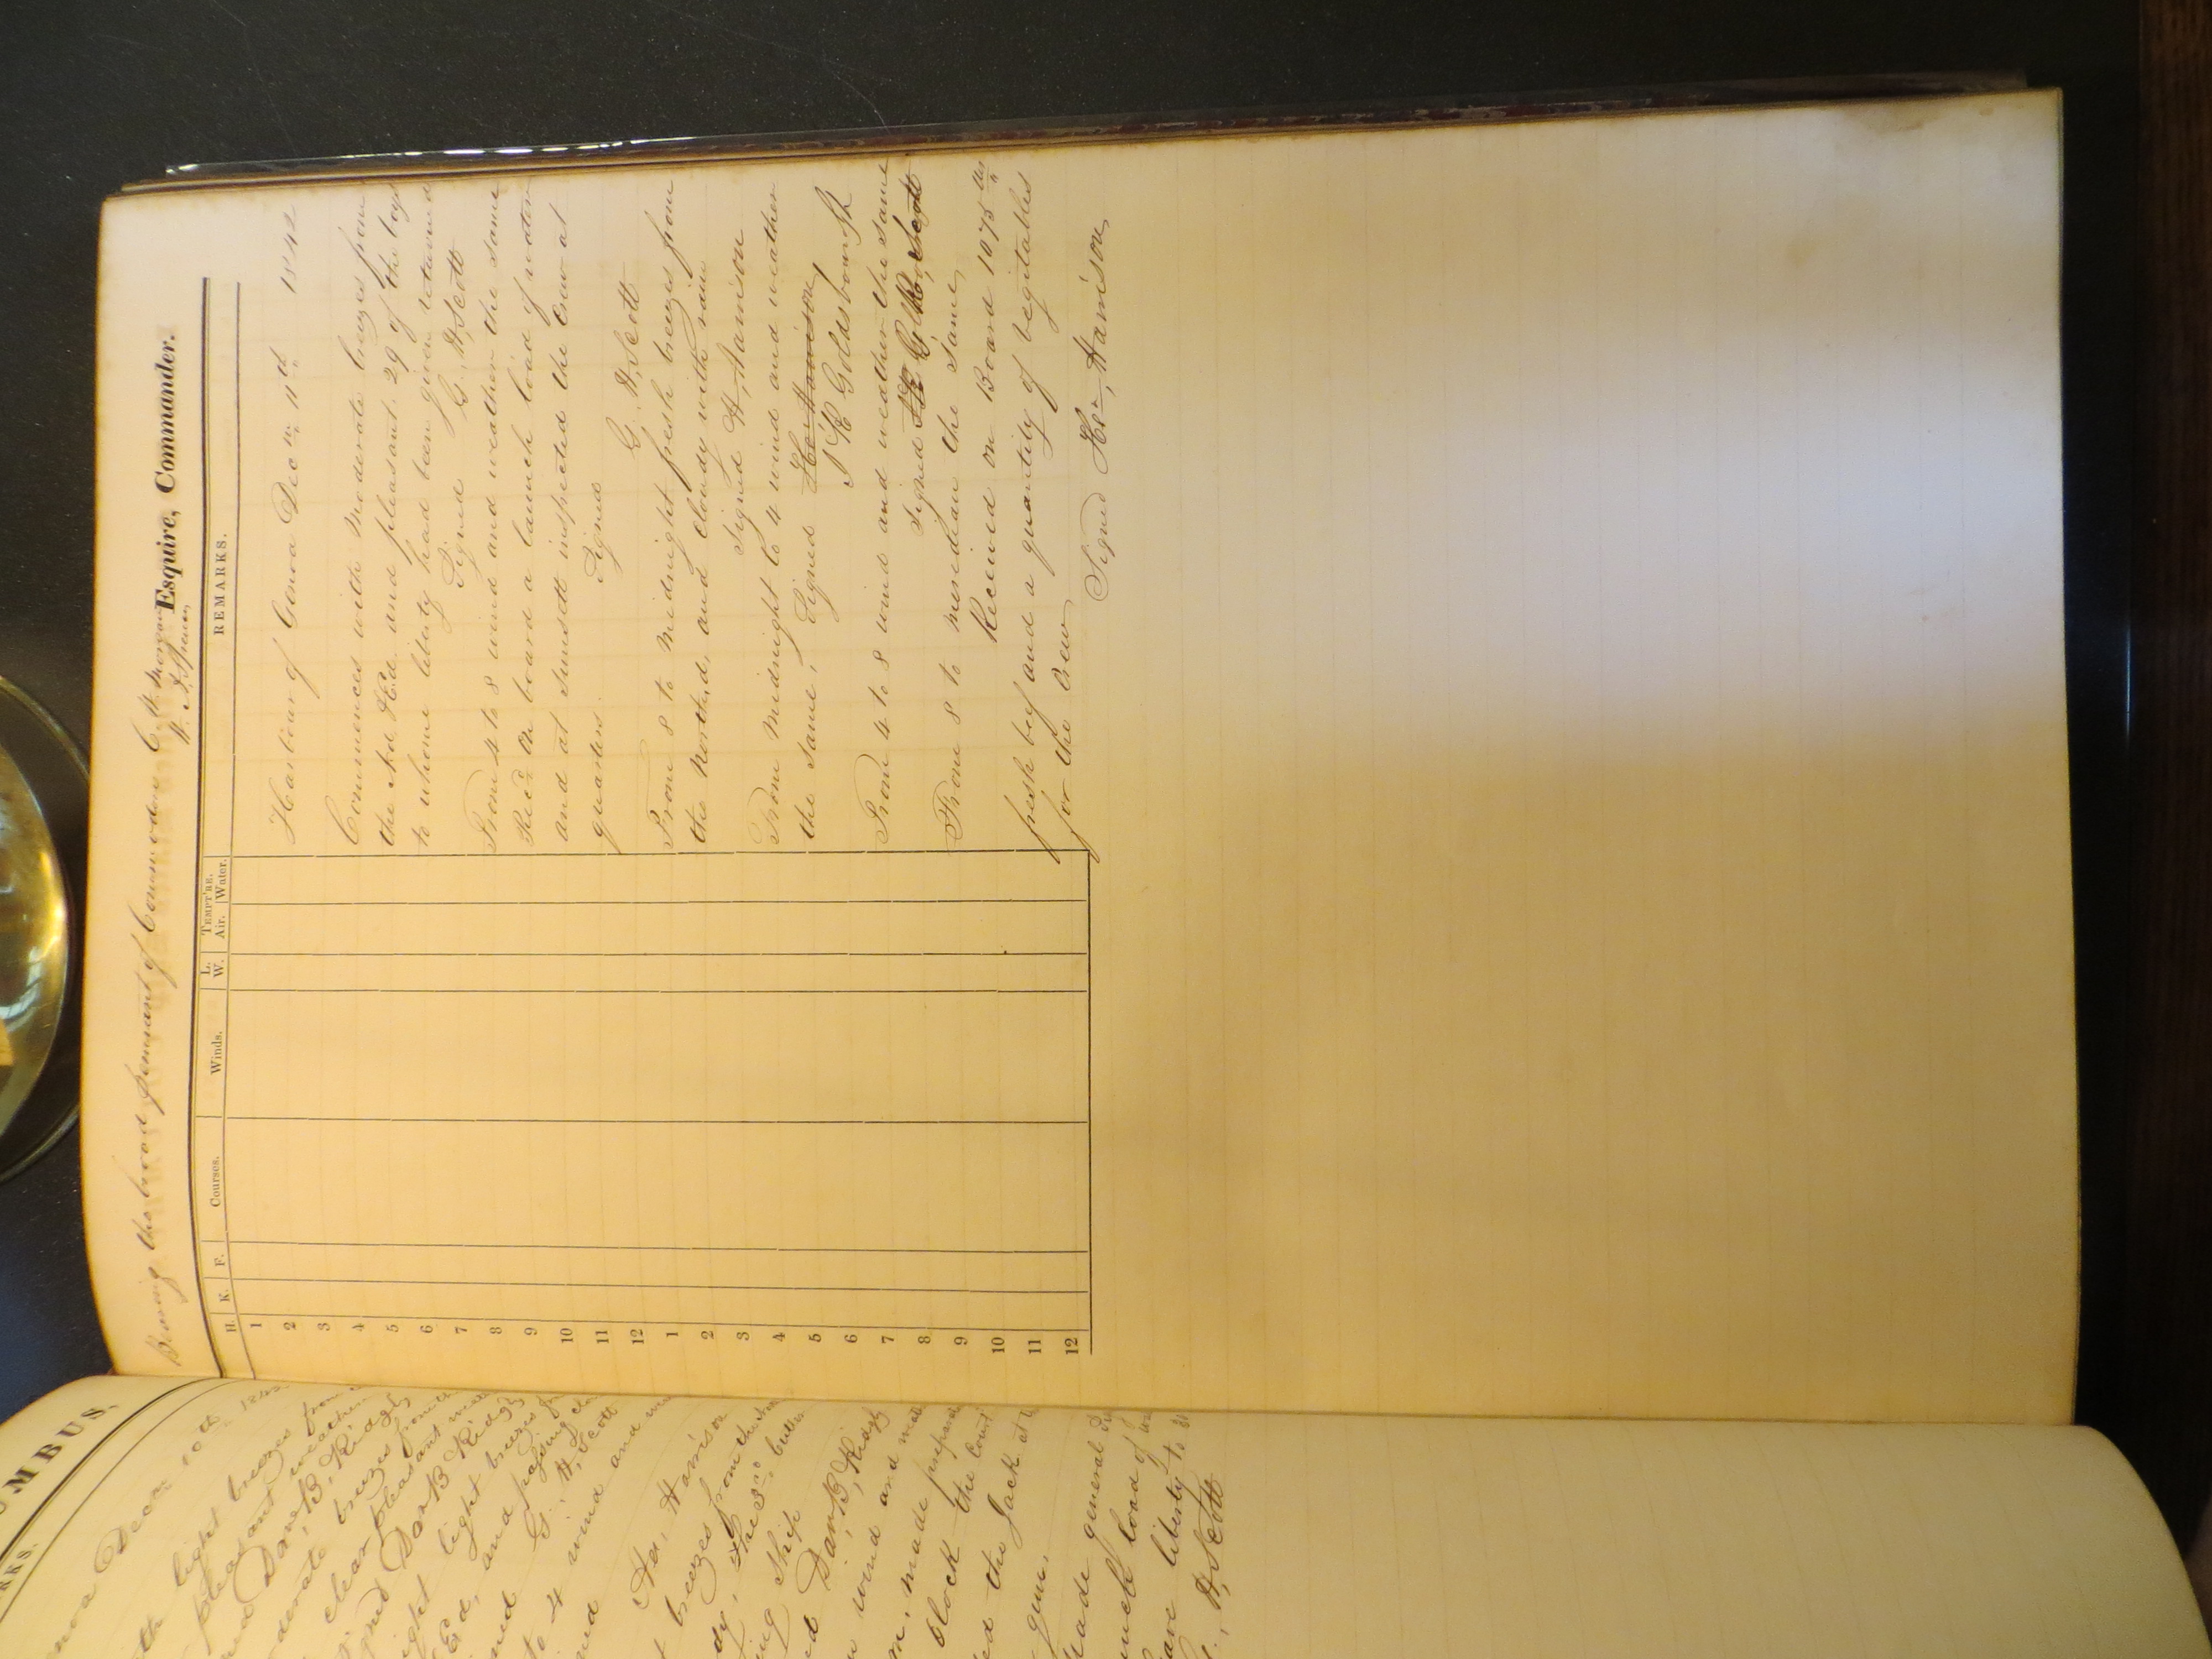 Bearing the broad pennant of Commodore C. W. Morgan
W. A. Spencer Esquire, Commander.
H. K. F. Courses. Winds. L. W. TEMPT'RE. Air. Water. REMARKS.
1
2
3
4
5
6
7
8
9
10
11
12
1
2
3
4
5
6
7
8
9
10
11
12
Harbour of Genoa Decr 11th 1842
Commences with Moderate breezes from
the Nd. & Ed. and pleasant. 29 of the boys
to whome liberty had been given returned
Signed G. H. Scott
From 4 to 8 wind and weather the same
Recd on board a launch load of water
and at Sunsett inspected the Crew at
quarters. Signed
G. H. Scott
From 8 to Midnight fresh breezes from
the North.d. and Cloudy with rain
Signed H. Harrison
From Midnight to 4 wind and weather
the Same, Signed Harrison
J R Goldsborough
From 4 to 8 wind and weather the same
Signed Scott
From 8 to meredian the Same,
Received on Board 1075 lbs
fresh beef and a quantity of begitables
for the Crew
Signed Harrison
MBUS,
RKS.
noa Decr 10th 1842
th light breezes from
pleasant weather
ned Danl B, Ridgely
derate breezes from the
clear pleasant
gned Danl B Ridgely
ight light breezes
Ed, and passing
ned G. H, Scott
to 4 wind and
ned
Harrison
t breezes from
dy,
ing Ship
ed Danl B, Ridgely
wind and
m, made
block the
ed the Jack at
gun,
made general
unch load of
ave liberty to
G., H, Scott